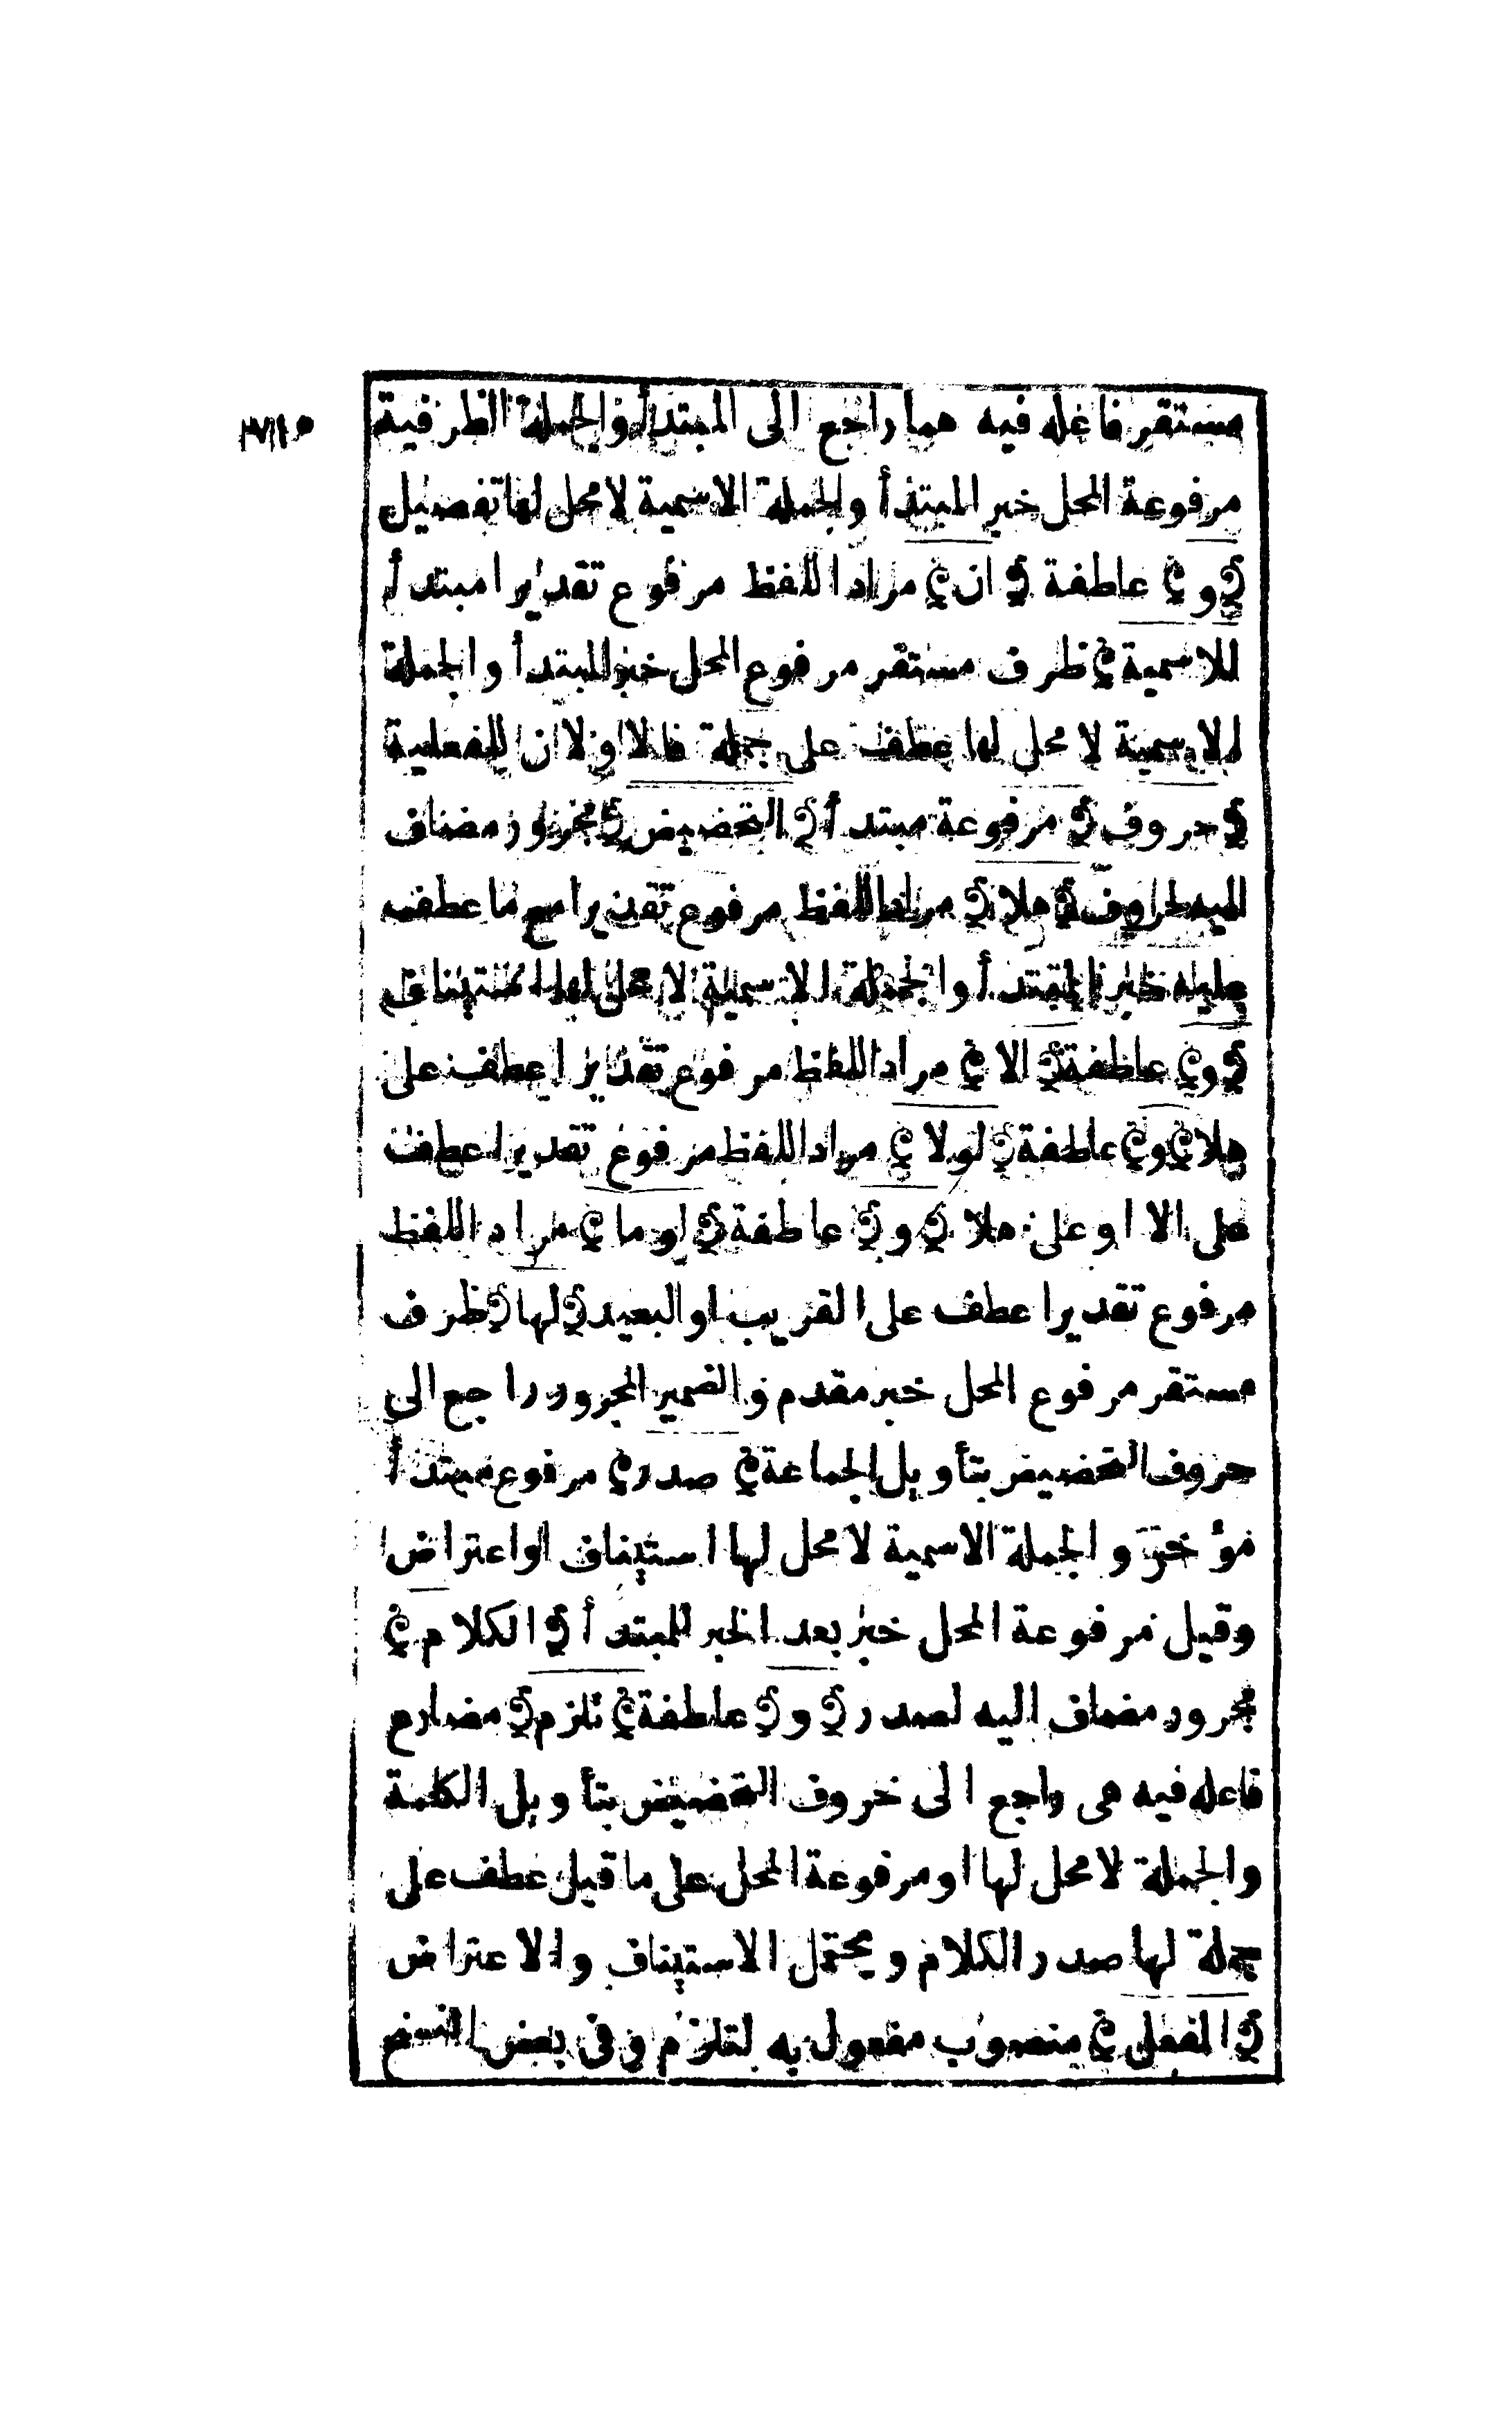 مستقر فاعله فيه هما راجع الى المبتدأ والجملة الظرفية
مرفوعة المحل خبر المبتدأ والجملة الاسمية لا محل لها تفصيل
﴿و﴾ عاطفة ﴿ان﴾ مراد اللفظ مرفوع تقديرا مبتدأ
للاسمية ﴾ ظرف مستقر مرفوع المحل خبر المبتدأ والجملة
الاسمية لا محل لها عطف على جملة فالاولان للفعلية
﴿حروف﴾ مرفوعة مبتدأ ﴿التحضيض﴾ مجرور مضاف
اليه لحروف ﴿هلا﴾ مراد اللفظ مرفوع تقديرا مع ما عطف
عليه خبر المبتدأ والجملة الاسمية لا محل لها استيناف
﴿و﴾ عاطفة ﴿الا﴾ مراد اللفظ مرفوع تقديرا عطف على
هلا ﴿و﴾ عاطفة ﴿لولا﴾ مراد اللفظ مرفوع تقديرا عطف
على الا او على هلا ﴿و﴾ عاطفة ﴿لوما﴾ مراد اللفظ
مرفوع تقديرا عطف على القريب او البعيد ﴿لها﴾ ظرف
مستقر مرفوع المحل خبر مقدم والضمير المجرور راجع الى
حروف التحضيض بتأويل الجماعة ﴿صدر﴾ مرفوع مبتدأ
مؤخر والجملة الاسمية لا محل لها استيناف او اعتراض
وقيل مرفوعة المحل خبر بعد الخبر للمبتدأ ﴿الكلام﴾
مجرور مضاف اليه لصدر ﴿و﴾ عاطفة ﴿تلزم﴾ مضارع
فاعله فيه هى راجع الى حروف التحضيض بتأويل الكلمة
والجملة لا محل لها او مرفوعة المحل على ما قيل عطف على
جملة لها صدر الكلام ويحتمل الاستيناف والاعتراض
﴿الفعل﴾ منصوب مفعول به لتلزم وفى بعض النسخ